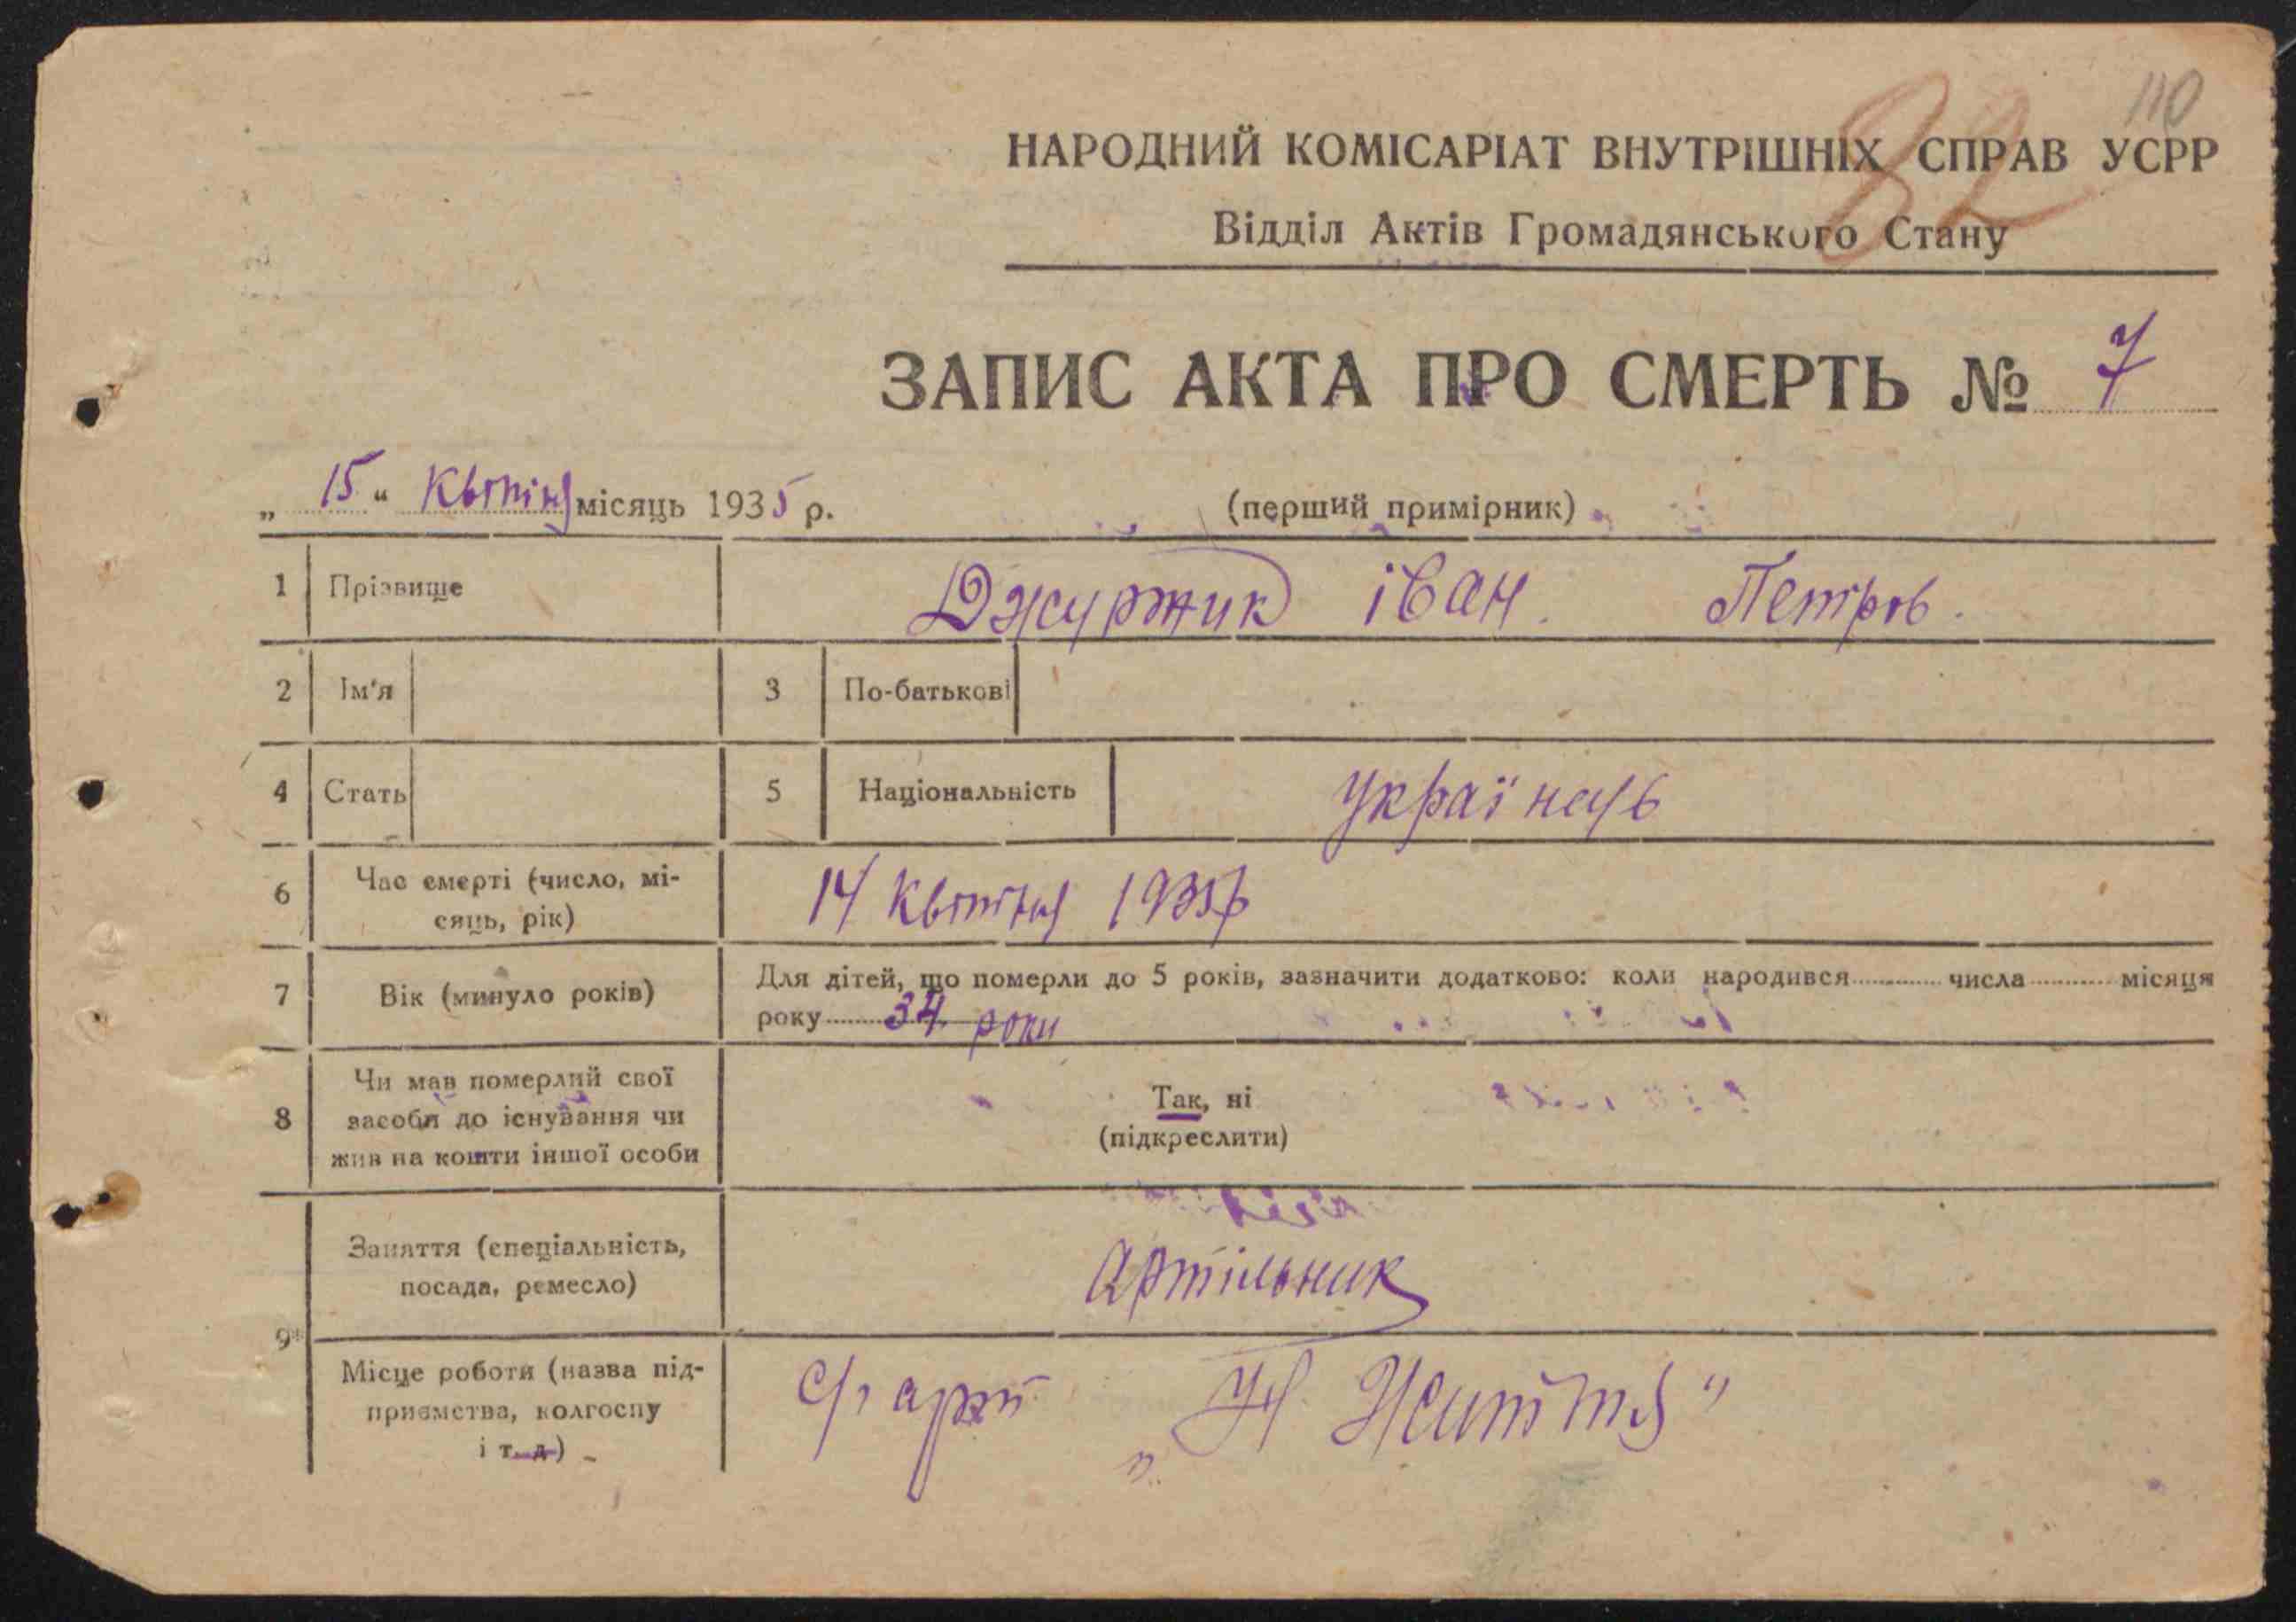 110
82
НАРОДНИЙ КОМІСАРІАТ ВНУТРІШНІХ СПРАВ УСРР
Відділ Актів Громадянського Стану
ЗАПИС АКТА ПРО СМЕРТЬ № 7
„ 15 “ Квітня місяць 1935 р. (перший примірник)
1 Прізвище Джуржик іван. Петров.
2 Ім'я 3 По-батькові
4 Стать 5 Національність Українець
6 Час смерті (число, мі-
сяць, рік) 14 Квітня 1935р
7 Вік (минуло років) Для дітей, що померли до 5 років, зазначити додатково: коли народився числа місяця
року 34 роки
8 Чи мав померлий свої
засоби до існування чи
жив на кошти іншої особи
Так, ні
(підкреслити)
9 Заняття (спеціальність,
посада, ремесло) Артільник
Місце роботи (назва під-
приємства, колгоспу
і т. д) С/г арт „Н. Життя"